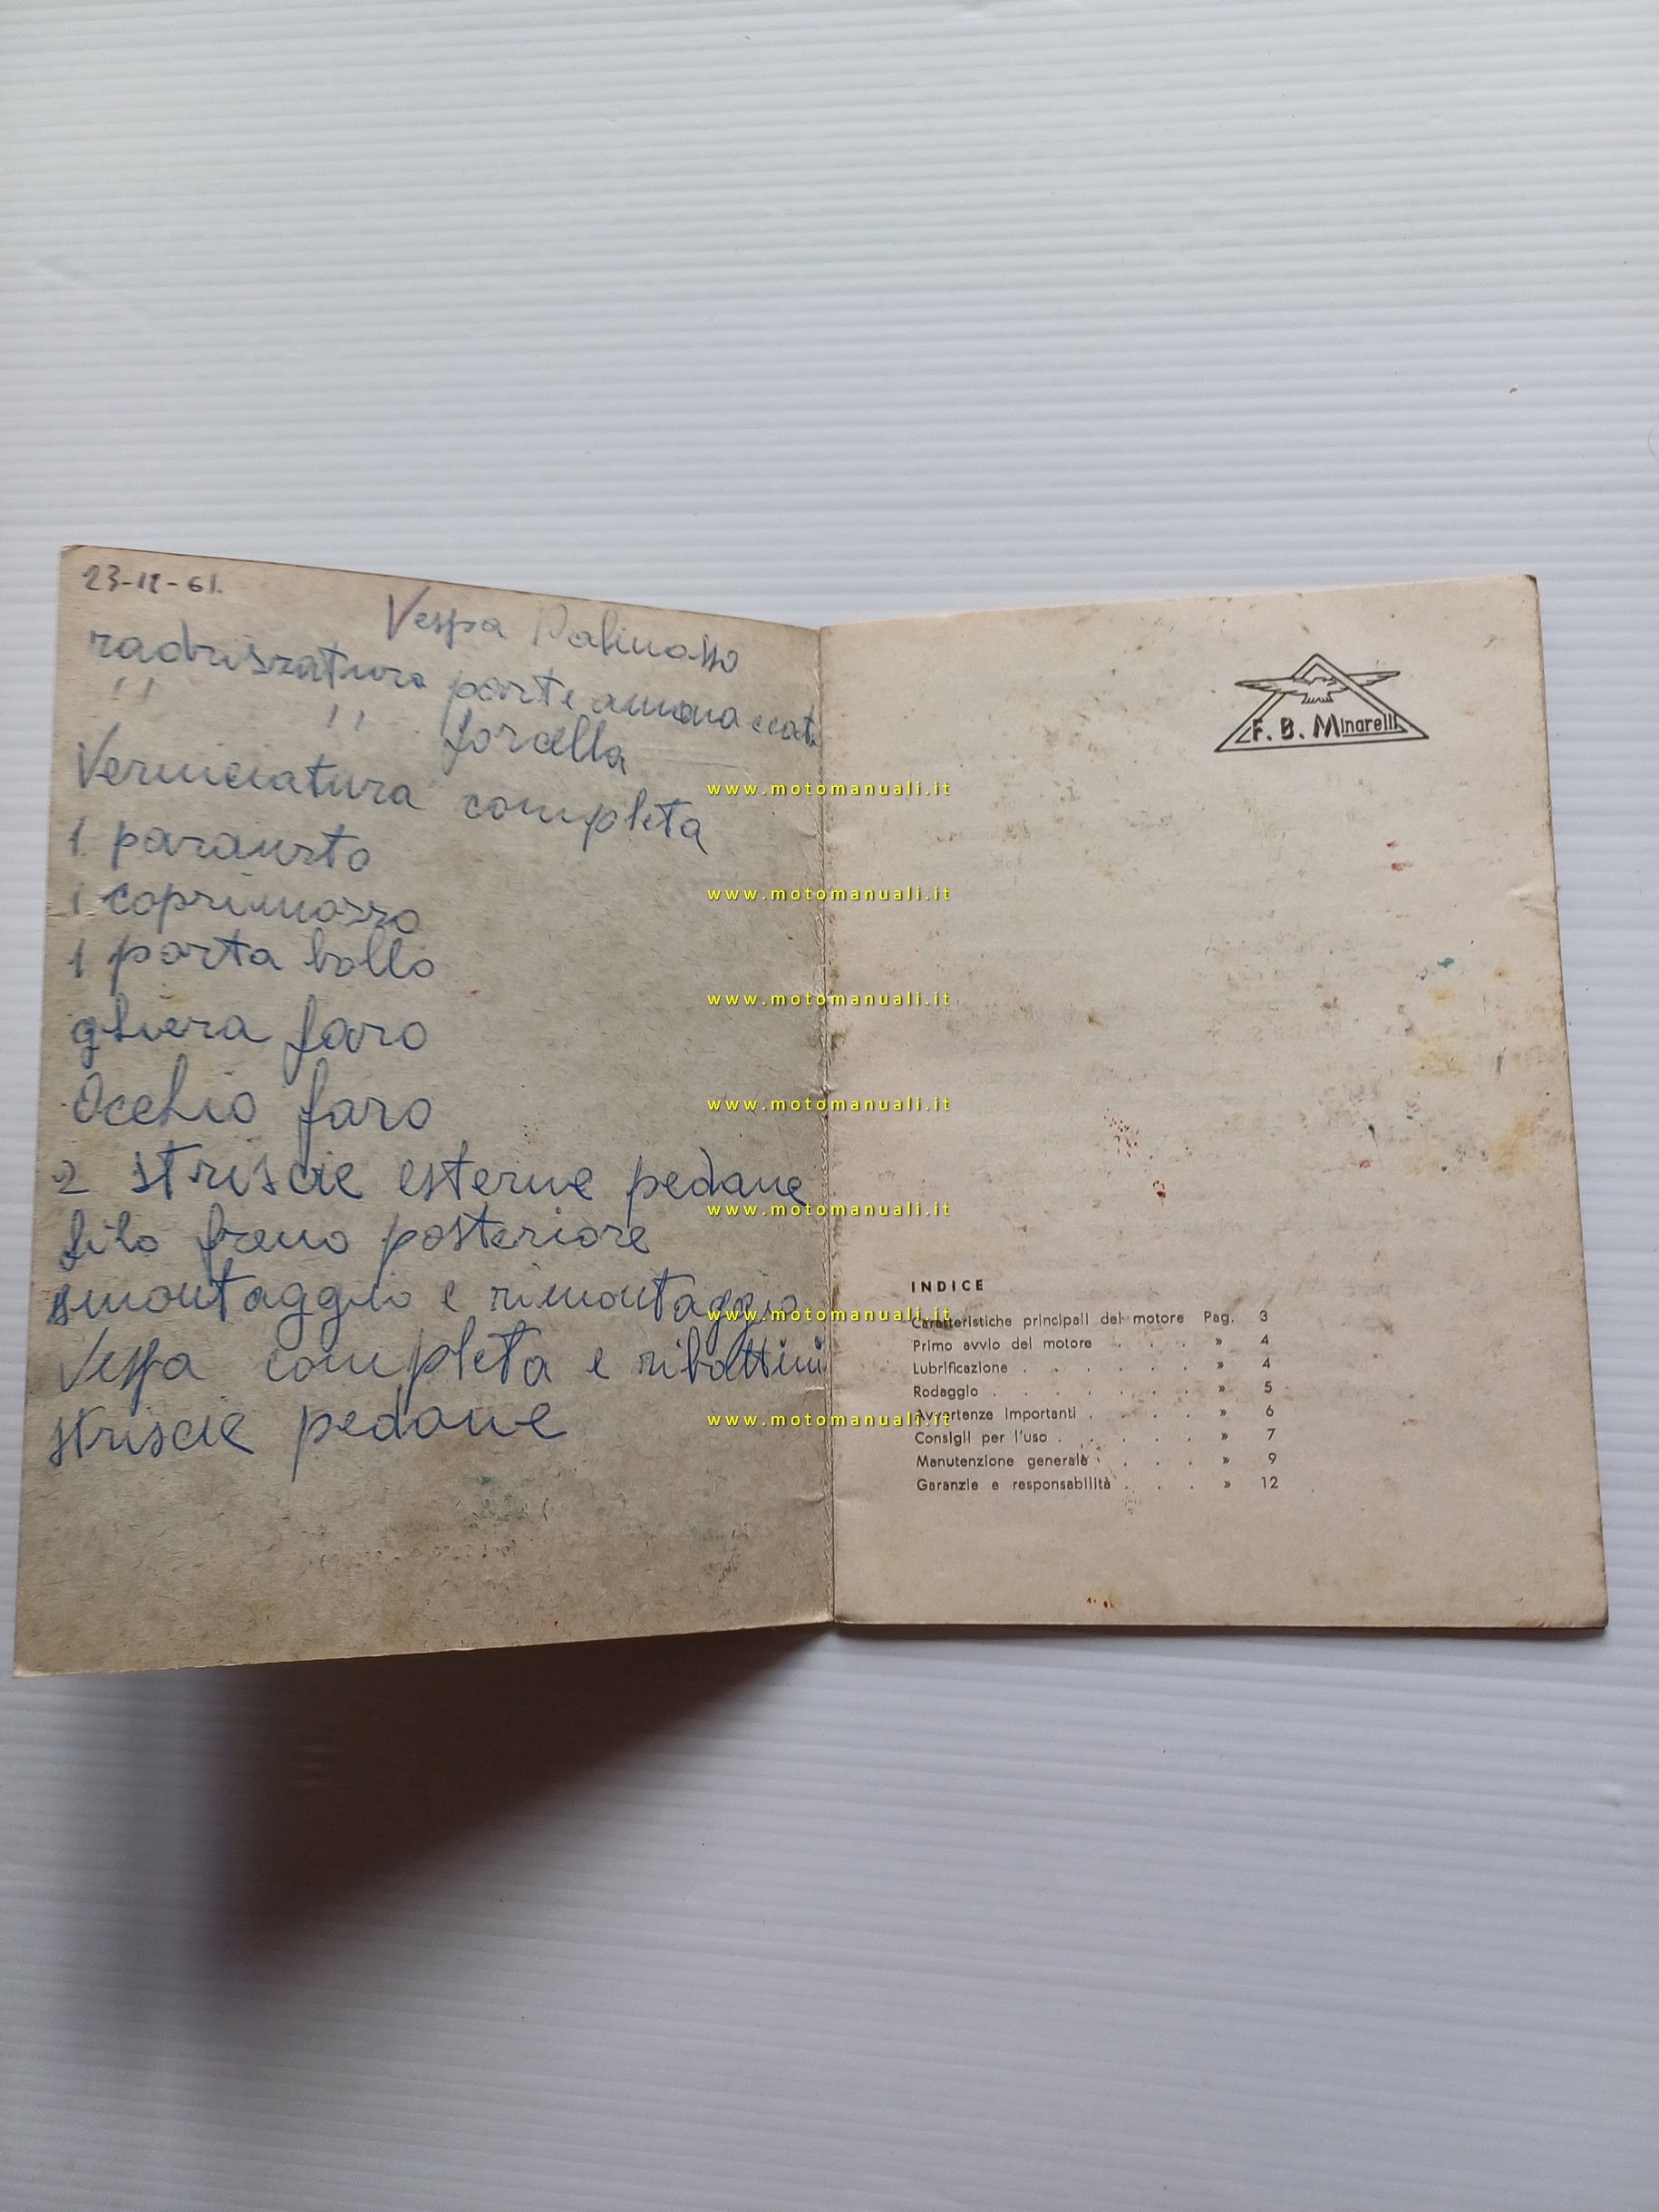 23-12-61.
Vespa
radrizzatura parte ammaccata
" " forcella
Verniciatura completa
1 paraurto
1 coprimozzo
1 porta bollo
ghiera faro
Occhio faro
2 striscie esterne pedane
filo freno posteriore
smontaggio e rimontaggio
Vespa completa e ribattini
striscie pedane
F. B. Minarelli
INDICE
Caratteristiche principali del motore Pag. 3
Primo avvio del motore . . . » 4
Lubrificazione . . . . . . » 4
Rodaggio . . . . . . . » 5
Avvertenze importanti . . . . » 6
Consigli per l'uso . . . . . » 7
Manutenzione generale . . . » 9
Garanzie e responsabilità . . . » 12
www.motomanuali.it
www.motomanuali.it
www.motomanuali.it
www.motomanuali.it
www.motomanuali.it
www.motomanuali.it
www.motomanuali.it